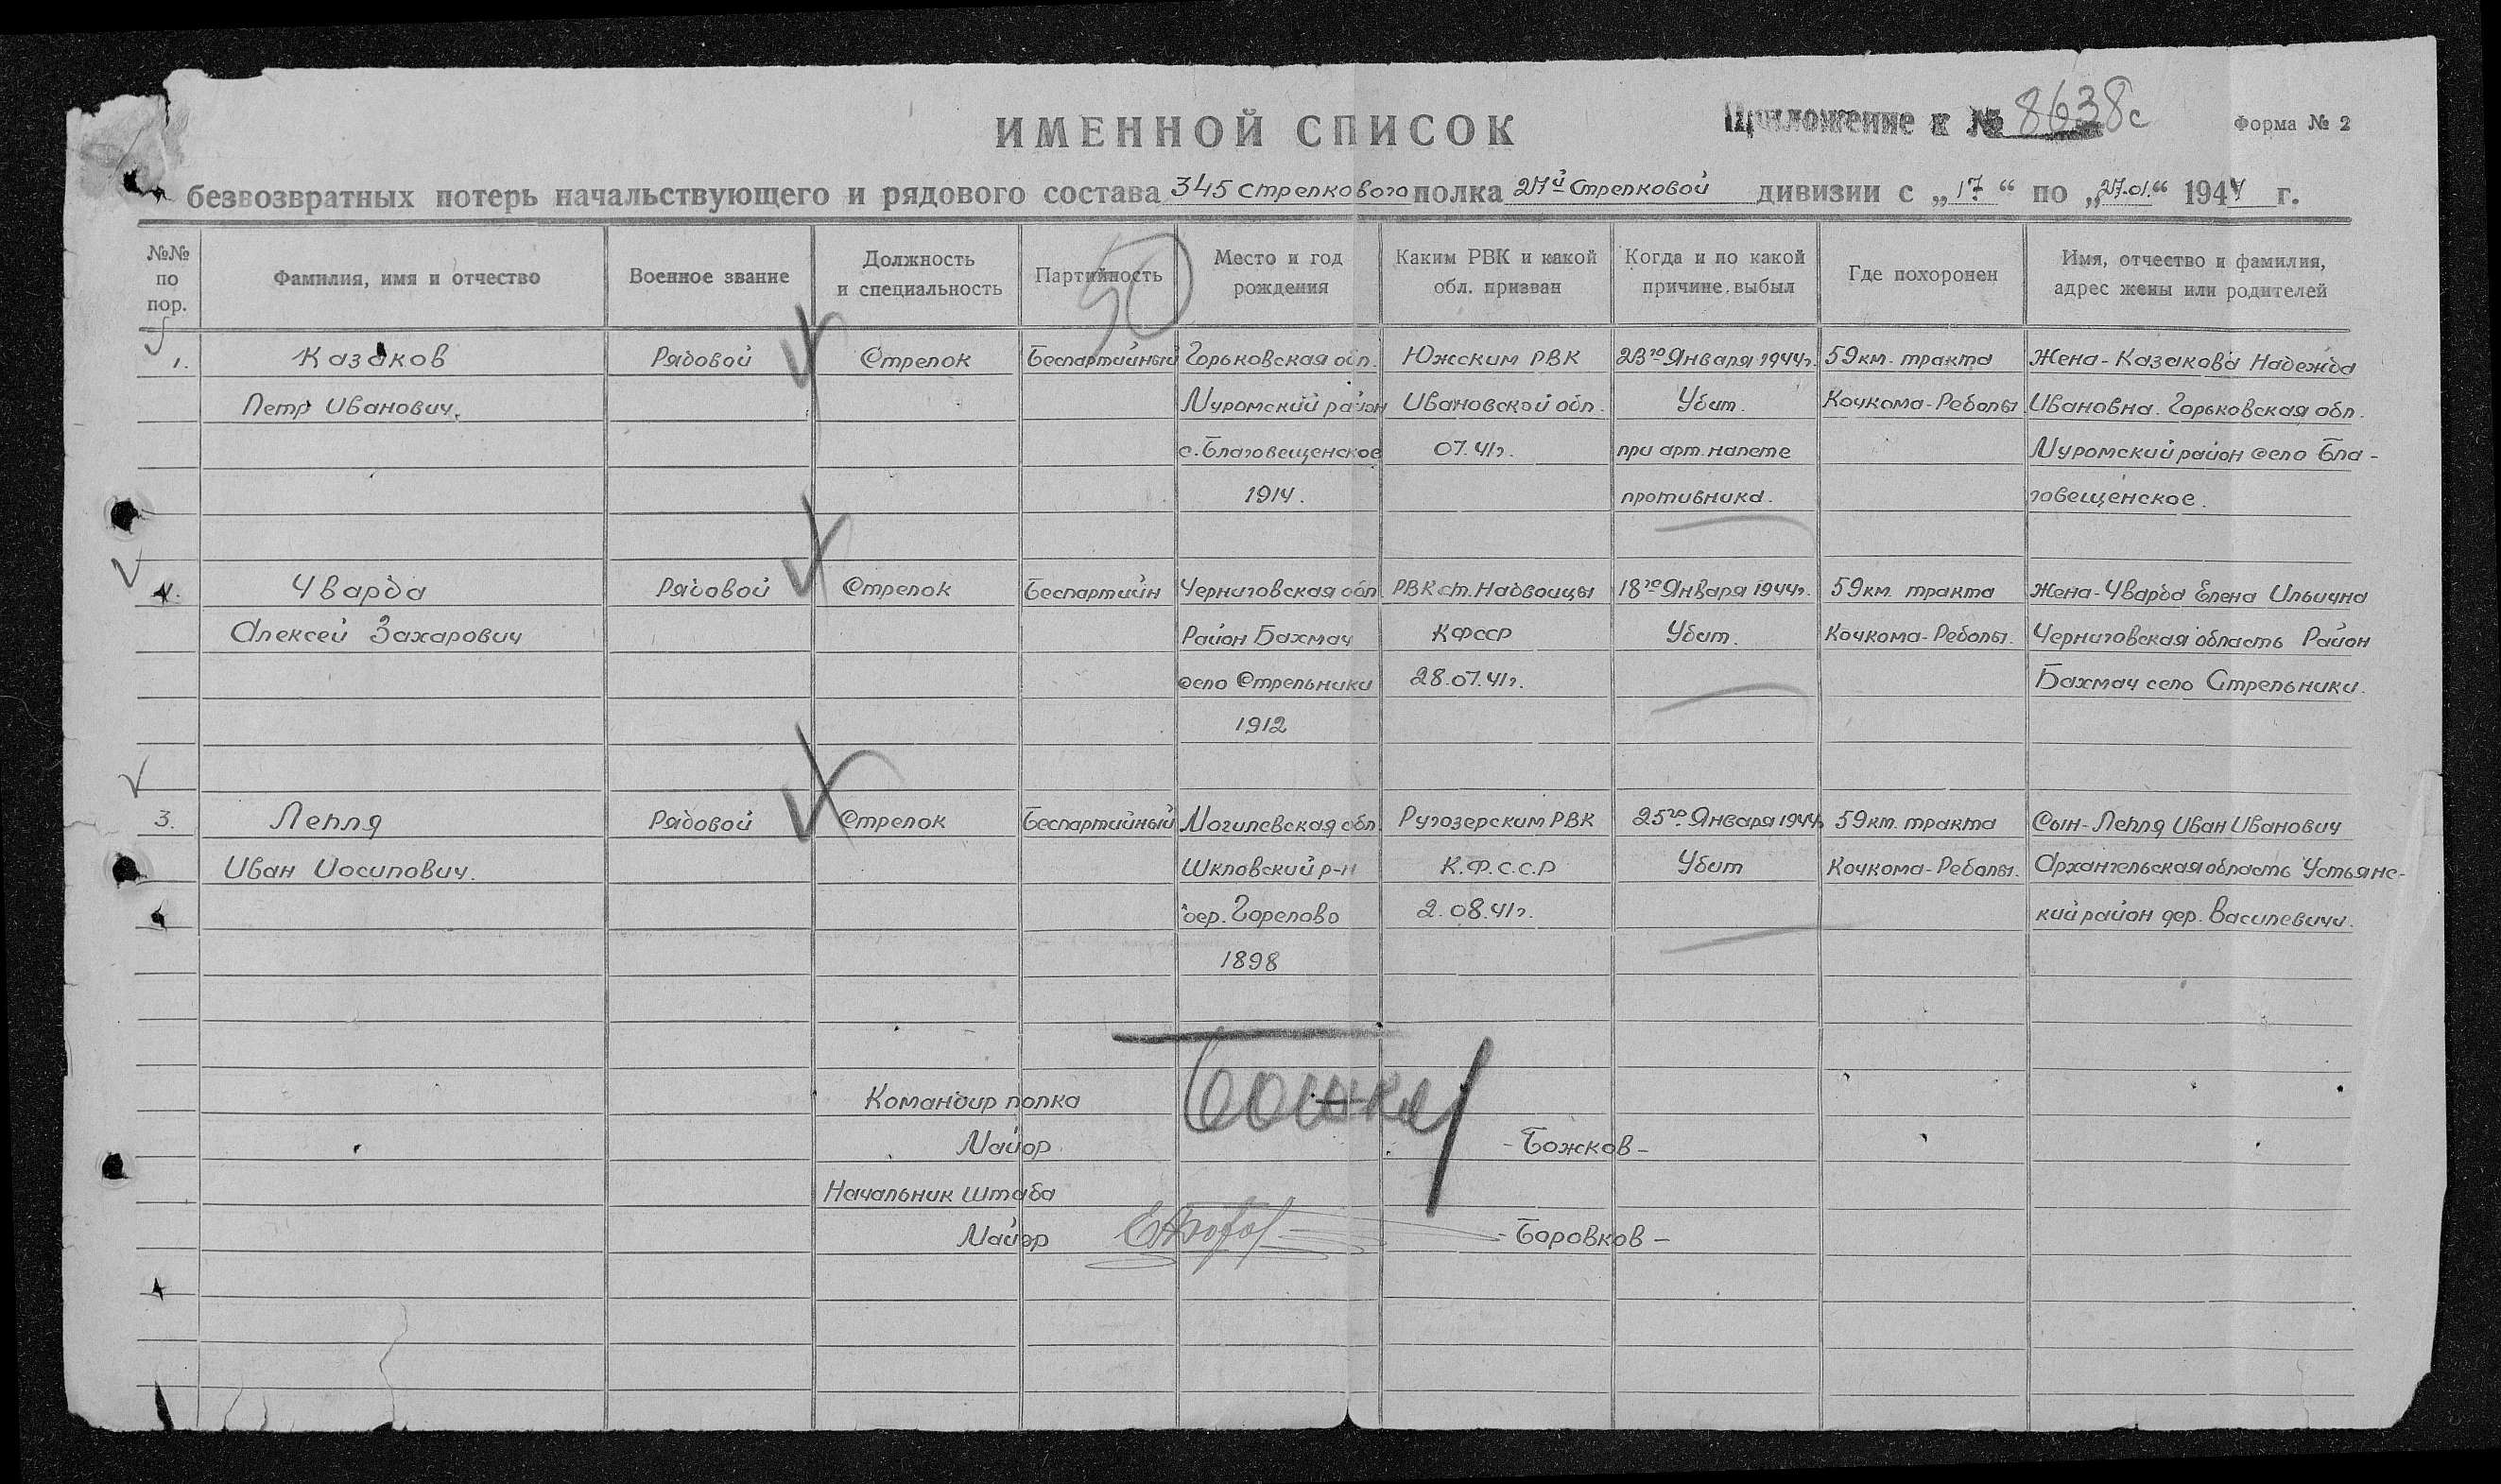 ИМЕННОЙ СПИСОК
Приложение к № 8638с
Форма № 2
безвозвратных потерь начальствующего и рядового состава 345 стрелкового полка 27й Стрелковой дивизии с „17“ по „27.01.“ 1944 г.
№№ по пор.
Фамилия, имя и отчество
Военное звание
Должность и специальность
Партийность
Место и год рождения
Каким РВК и какой обл. призван
Когда и по какой причине выбыл
Где похоронен
Имя, отчество и фамилия, адрес жены или родителей
50
1. Казаков Рядовой Стрелок Беспартийный Горьковская обл. Южским РВК 23го Января 1944г. 59км. тракта Жена-Казакова Надежда
Петр Иванович. Муромский район Ивановской обл. Убит. Кочкома-Реболы Ивановна. Горьковская обл.
с. Благовещенское 07.41г. при арт. налете Муромский район село Бла-
1914. противника. говещенское.
Чварда Рядовой Стрелок Беспартийн Черниговская обл РВК ст. Надвоицы 18го Января 1944г. 59км. тракта Жена-Чварда Елена Ильична
Алексей Захарович Район Бахмач КФССР Убит. Кочкома-Реболы. Черниговская область Район
село Стрельники 28.07.41г. Бахмач село Стрельники.
1912
3. Лепля Рядовой Стрелок Беспартийный Могилевская обл Ругозерским РВК 25го Января 1944г 59км. тракта Сын-Лепля Иван Иванович
Иван Иосипович. Шкловский р-н К.Ф.С.С.Р Убит Кочкома-Реболы. Архангельская область Устьянс-
дер. Горелово 2.08.41г. кий район дер. Василевичи.
1898
Командир полка
Майор -Божков-
Начальник штаба
Майор -Боровков-